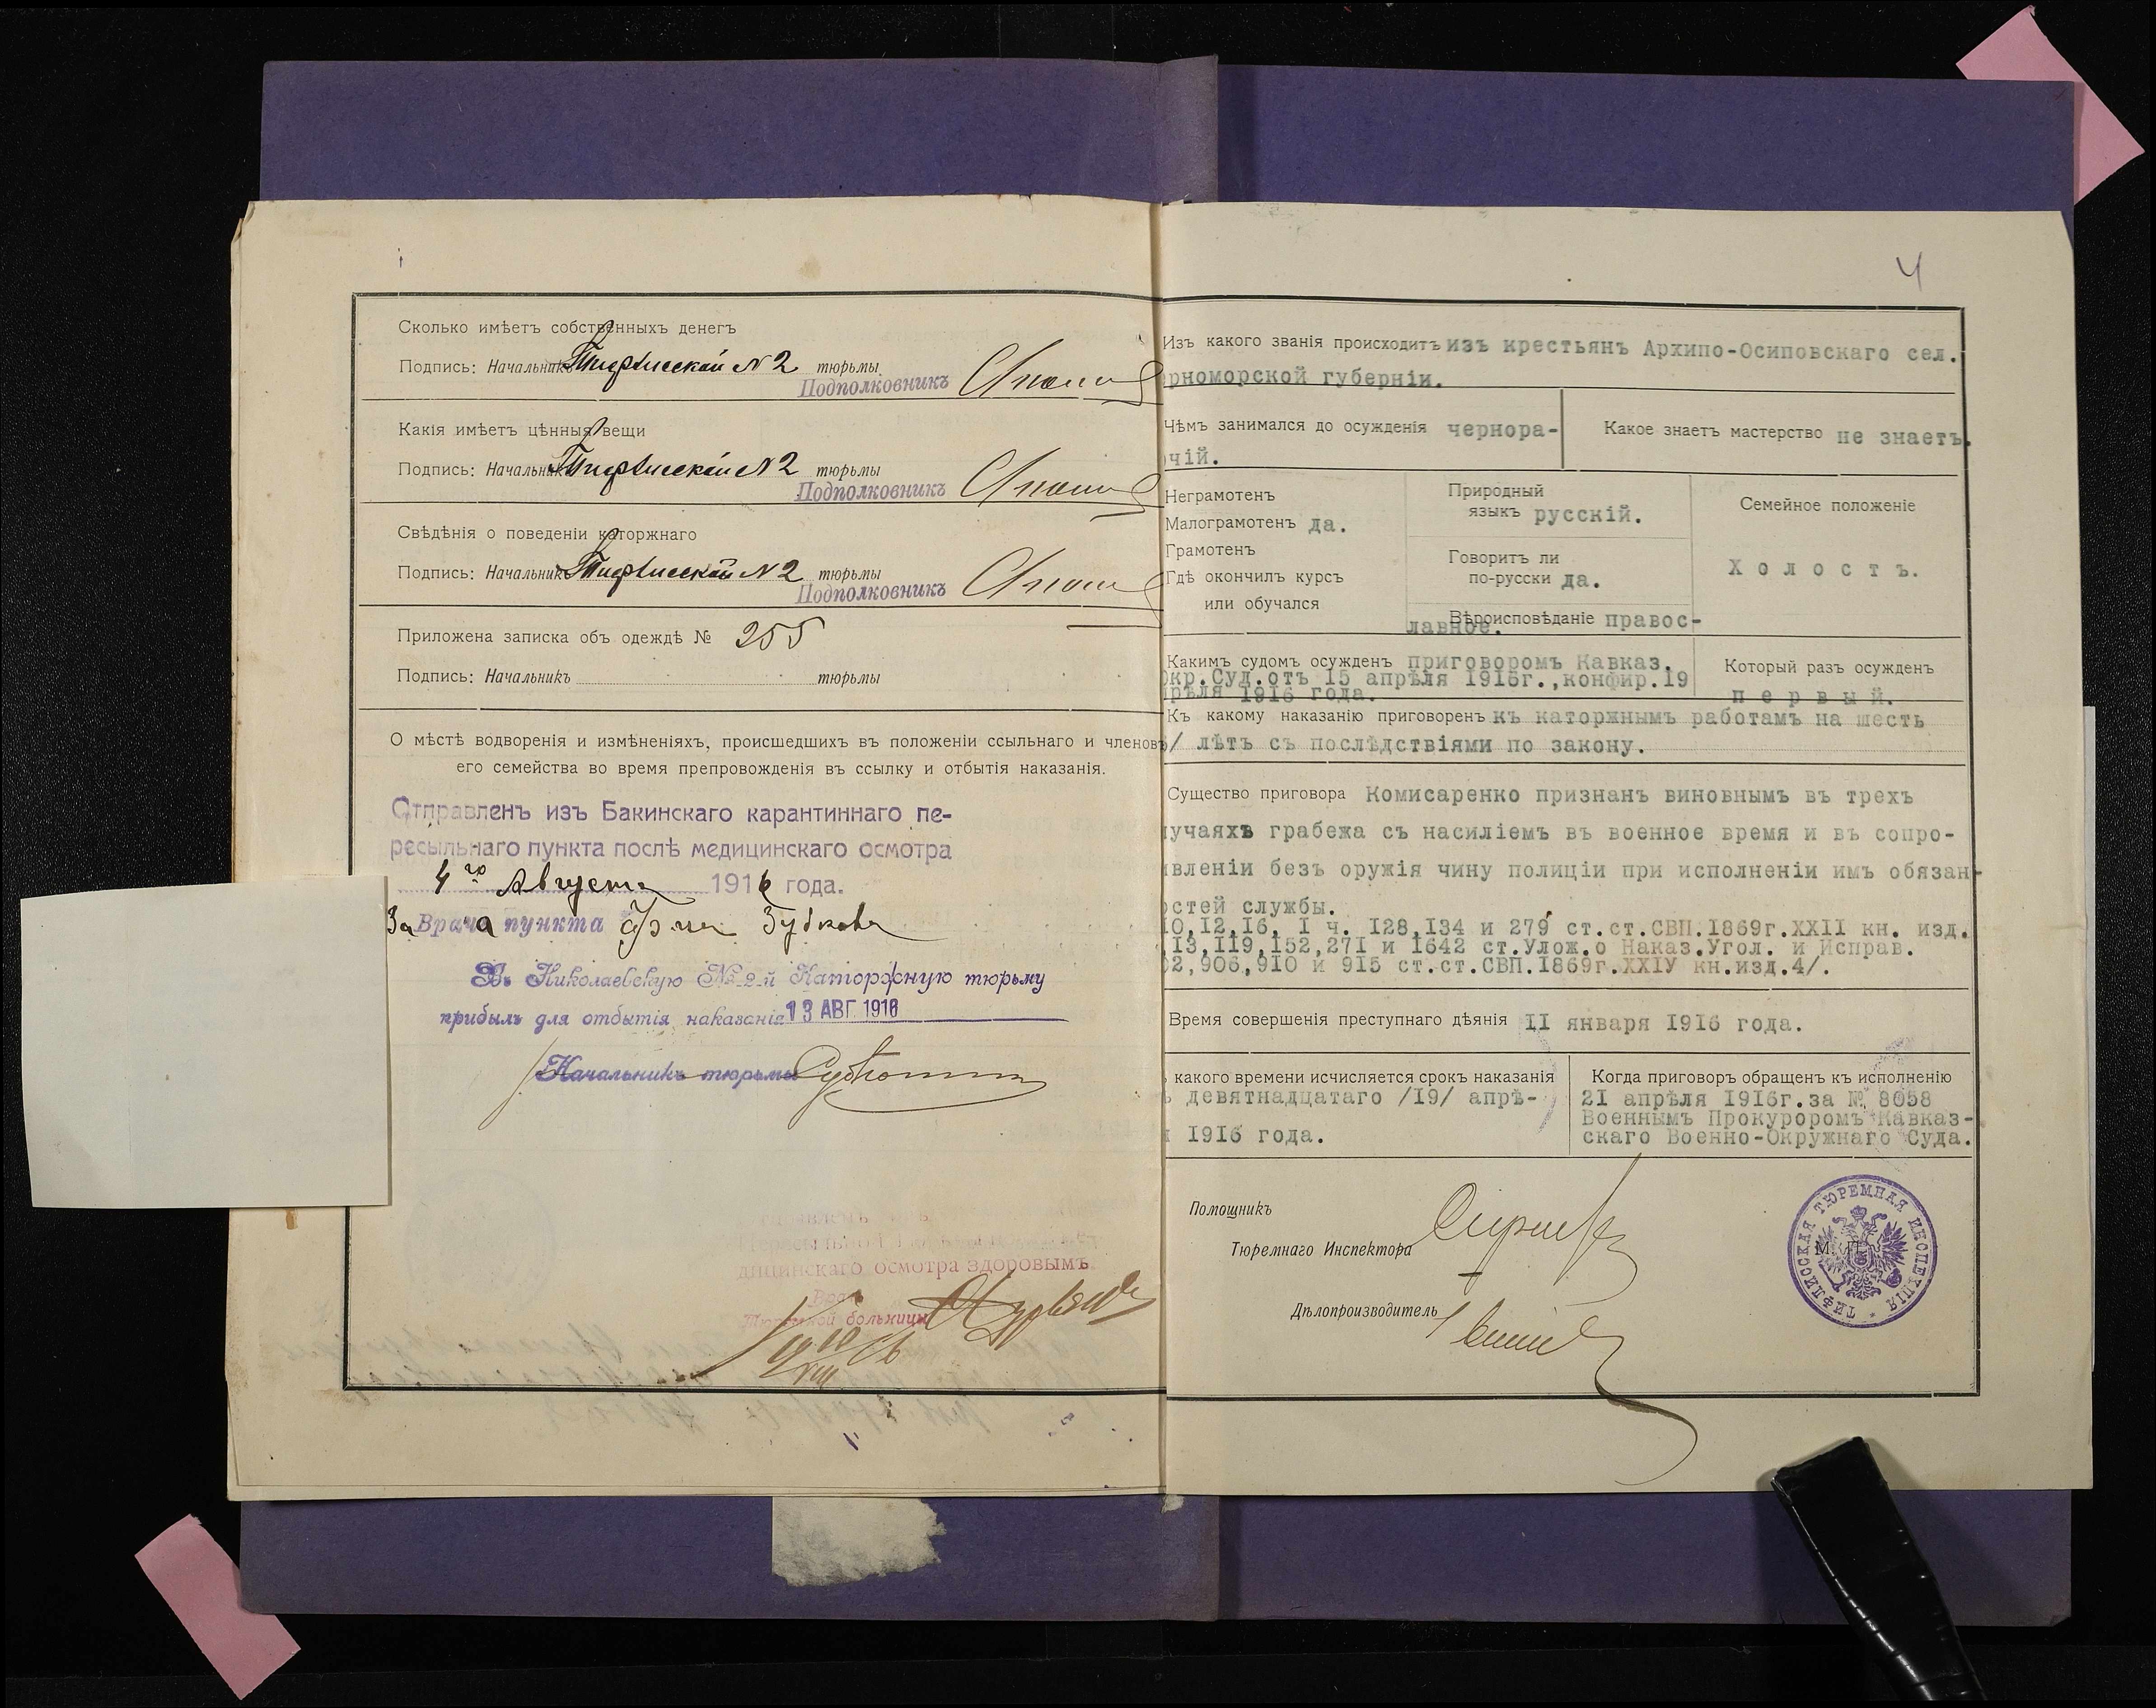 Сколько имѣетъ собственныхъ денегъ
Подпись: Начальникъ Тифлисской №2 тюрьмы
Подполковникъ
Какія имѣетъ цѣнныя вещи
Подпись: Начальникъ Тифлисской №2 тюрьмы
Подполковникъ
Свѣдѣнія о поведеніи каторжнаго
Подпись: Начальникъ Тифлисской №2 тюрьмы
Подполковникъ
Приложена записка объ одеждѣ № 255
Подпись: Начальникъ тюрьмы
О мѣстѣ водворенія и измѣненіяхъ, происшедшихъ въ положеніи ссыльнаго и членовъ
его семейства во время препровожденія въ ссылку и отбытія наказанія.
Отправленъ изъ Бакинскаго карантиннаго пе-
ресыльнаго пункта послѣ медицинскаго осмотра
4го Августа 1916 года.
За Врача пункта
Въ Николаевскую № 2-й Каторжную тюрьму
прибылъ для отбытія наказанія 13 АВГ. 1916
Начальникъ тюрьмы
дицинскаго осмотра здоровымъ
Врачъ
Тюремной больницы
4
Изъ какого званія происходитъ изъ крестьянъ Архипо-Осиповскаго сел.
рноморской губерніи.
Чѣмъ занимался до осужденія чернора-
чій.
Какое знаетъ мастерство не знаетъ.
Неграмотенъ
Малограмотенъ да.
Грамотенъ
Гдѣ окончилъ курсъ
или обучался
Природный
языкъ русскій.
Говоритъ ли
по-русски да.
Вѣроисповѣданіе правос-
лавное.
Семейное положеніе
Холостъ.
Какимъ судомъ осужденъ приговоромъ Кавказ.
Окр.Суд.отъ 15 апрѣля 1916г.,конфир.19
прѣля 1916 года.
Который разъ осужденъ
первый.
Къ какому наказанію приговоренъ къ каторжнымъ работамъ на шесть
/ лѣтъ съ послѣдствіями по закону.
Существо приговора Комисаренко признанъ виновнымъ въ трехъ
лучаяхъ грабежа съ насиліемъ въ военное время и въ сопро-
ивленіи безъ оружія чину полиціи при исполненіи имъ обязан-
остей службы.
10,12,16, I ч. 128,134 и 279 ст.ст.СВП.1869г.XXII кн. изд.
113,119,152,271 и 1642 ст.Улож.о Наказ.Угол. и Исправ.
2,906,910 и 915 ст.ст.СВП.1869г.XXIV кн.изд.4/.
Время совершенія преступнаго дѣянія II января 1916 года.
какого времени исчисляется срокъ наказанія
девятнадцатаго /19/ апрѣ-
1916 года.
Когда приговоръ обращенъ къ исполненію
21 апрѣля 1916г.за № 8058
Военнымъ Прокуроромъ Кавказ-
скаго Военно-Окружнаго Суда.
Помощникъ
Тюремнаго Инспектора
Дѣлопроизводитель
М. П.
ТИФЛИССКАЯ ТЮРЕМНАЯ ИНСПЕКЦІЯ